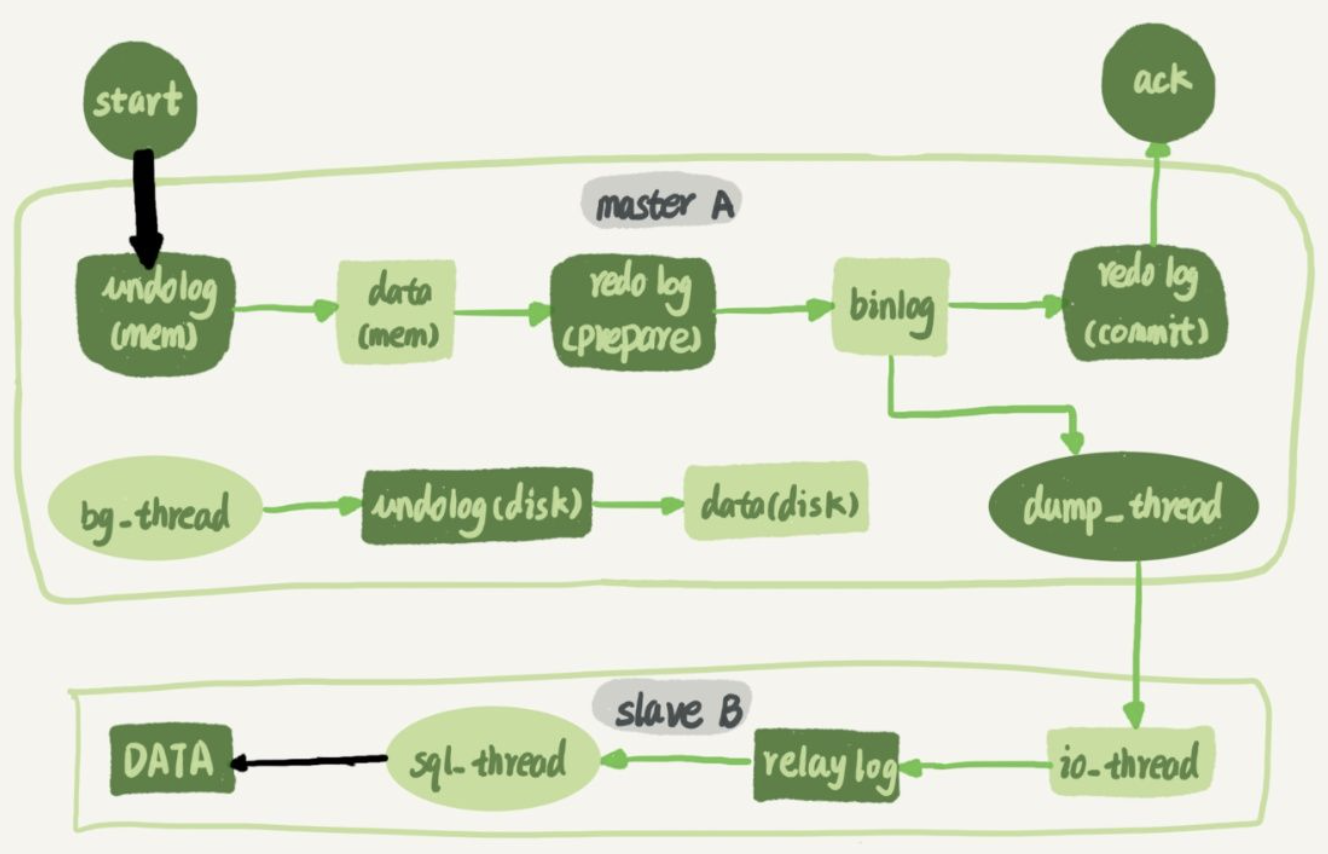 start
ack
master A
undolog
(mem)
data
(mem)
redo log
(prepare)
binlog
redo log
(commit)
bg_thread
undolog(disk)
data(disk)
dump_thread
slave B
DATA
sql_thread
relay log
io_thread